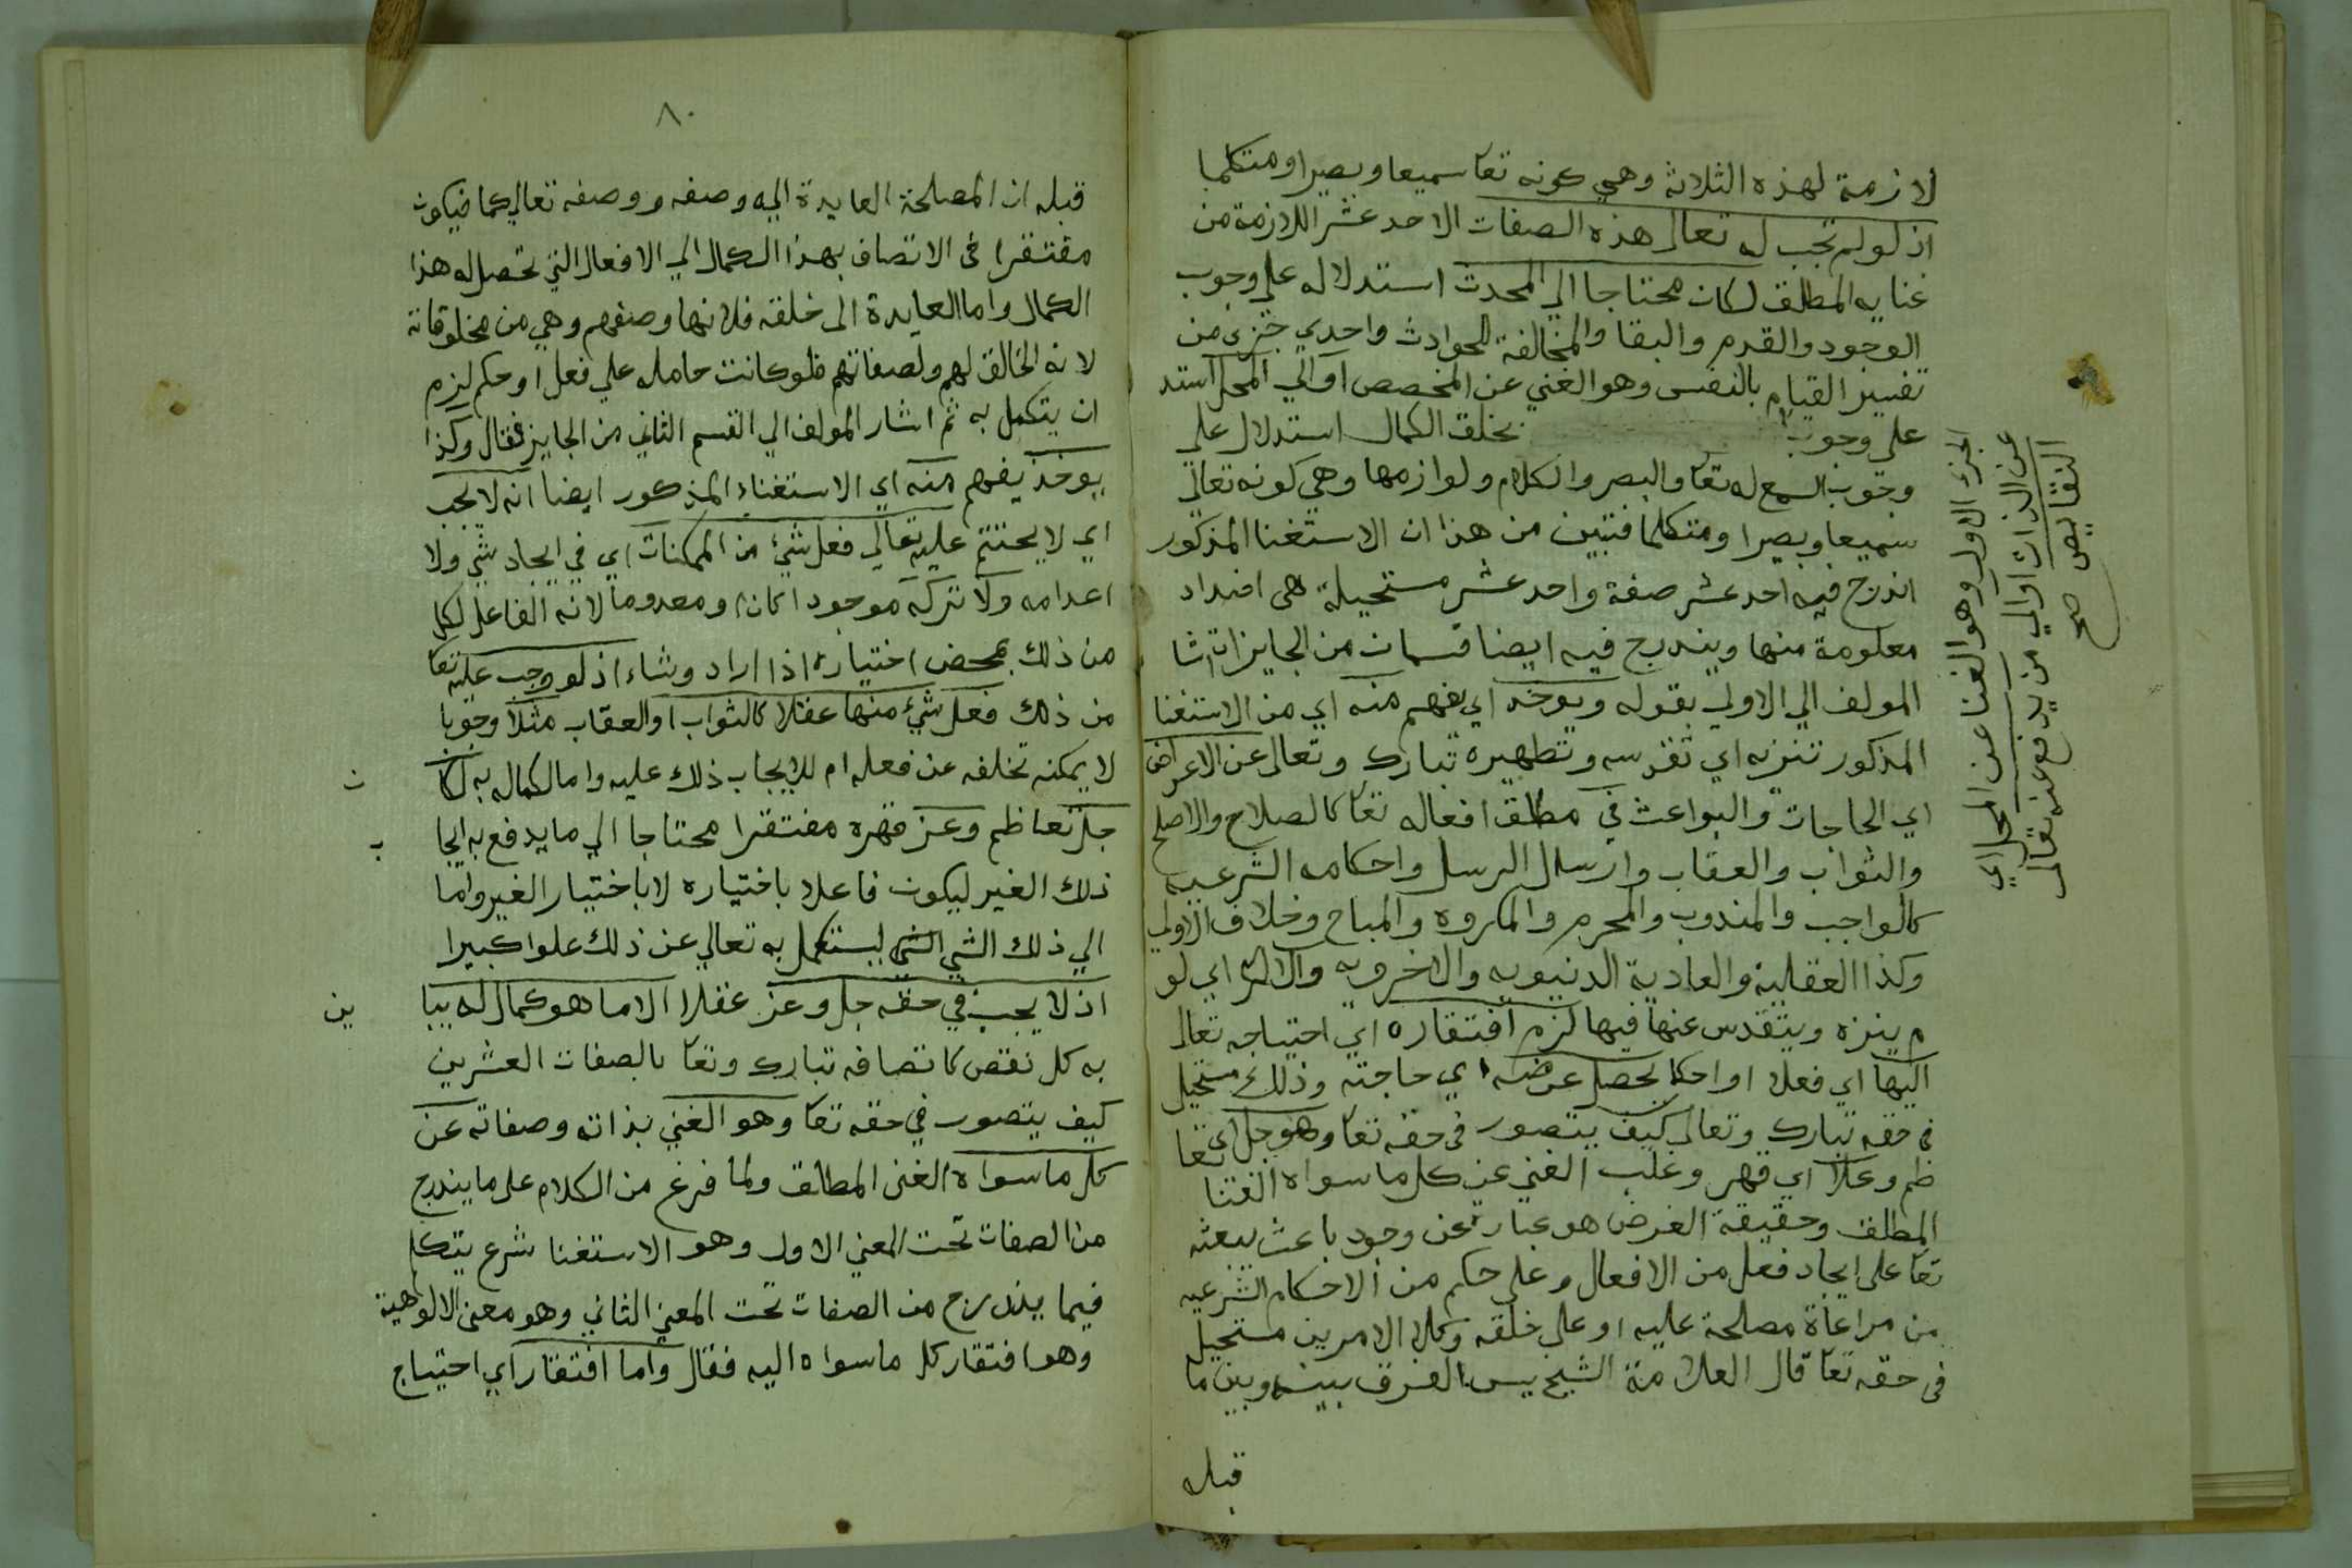 لازمة لهذه الثلاثة وهي كونه تعا سميعا وبصيرا ومتكلما
اذ لو لم تجب له تعالى هذه الصفات الاحد عشر اللازمة من
غنايه المطلق لكان محتاجا الي المحدث استدلاله علي وجوب
الوجود والقدم والبقا والمخالفة للحوادث واحدي جزئ من
تفسير القيام بالنفس وهو الغني عن المخصص او الي المحل استد
علي وجوب بخلق الكمال استدلال علي
وجوب السمع له تعا والبصر والكلام ولوازمها وهي كونه تعالي
سميعا وبصيرا ومتكلما فتبين من هذا ان الاستغنا المذكور
اندرج فيه احد عشر صفة واحد عشر مستحيلة هي اضداد
معلومة منها ويندرج فيه ايضا قسمان من الجايزات اشا
المولف الي الاولي بقوله ويوخذ اي يفهم منه اي من الاستغنا
المذكور تنزيه اي تقدسه وتطهيره تبارك وتعالى عن الاغراض
اي الحاجات والبواعث في مطلق افعاله تعا كالصلاح والاصلح
والثواب والعقاب وارسال الرسل واحكامه الشرعيه
كالواجب والمندوب والمحرم والمكروه والمباح وخلاف الاولي
وكذا العقلية والعادية الدنيويه والاخرويه والا لزم اي لو
م ينزه ويتقدس عنها فيها لزم افتقاره اي احتياجه تعالى
اليها اي فعلا او احكا يحصل غرضه اي حاجته وذلك مستحيل
في حقه تبارك وتعالى كيف يتصور في حقه تعا وهو جل اي تعا
ظم وعلا اي قهر وغلب الغني عن كل ما سواه الغنا
المطلق وحقيقة الغرض هو عبارة عن وجود باعث يبعثه
تعا على ايجاد فعل من الافعال وعلى حكم من الاحكام الشرعيه
من مراعاة مصلحة عليه او على خلقه وكلا الامرين مستحيل
في حقه تعا قال العلامة الشيخ يس الفرق بينه وبين ما
قبله
الجزء الاول وهو الغنا عن المحل اي
عن الذات او الي من يدفع عنه تعالى
النقايص صح
٨٠
قبله ان المصلحة العايدة اليه وصفه ووصفه تعالي كما فيكون
مفتقرا في الاتصاف بهذا الكمال الي الافعال التي تحصل له هذا
الكمال واما العايدة الى خلقه فلانها وصفهم وهي من مخلوقاته
لانه الخالق لهم ولصفاتهم فلو كانت حامله علي فعل او حكم لزم
ان يتكمل به ثم اشار المولف الي القسم الثاني من الجايز فقال وكذا
يوخذ يفهم منه اي الاستغناء المذكور ايضا انه لا يجب
اي لا يحتتم عليه تعالي فعل شيء من الممكنات اي في ايجاد شي ولا
اعدامه ولا تركه موجودا كان او معدوما لانه الفاعل لكل
من ذلك بمحض اختياره اذا اراد وشاء اذ لو وجب عليه تعا
من ذلك فعل شيء منها عقلا كالثواب او العقاب مثلا وجوبا
لا يمكنه تخلفه عن فعله ام للايجاب ذلك عليه واما لكماله به لكا ن
جل تعاظم وعز قهره مفتقرا محتاجا الي ما يدفع به ايجا ب
ذلك الغير ليكون فاعلا باختياره لا باختيار الغير واما
الي ذلك الشي الشي ليستكمل به تعالي عن ذلك علوا كبيرا
اذ لا يجب في حقه جل وعز عقلا الا ما هو كمال له يبا ين
به كل نقص كاتصافه تبارك وتعا بالصفات العشرين
كيف يتصور في حقه تعا وهو الغني بذاته وصفاته عن
كل ما سواه الغنى المطلق ولما فرغ من الكلام على ما يندرج
من الصفات تحت المعني الاول وهو الاستغنا شرع يتكلم
فيما يندرج من الصفات تحت المعني الثاني وهو معنى الالوهية
وهو افتقار كل ما سواه اليه فقال واما افتقار اي احتياج